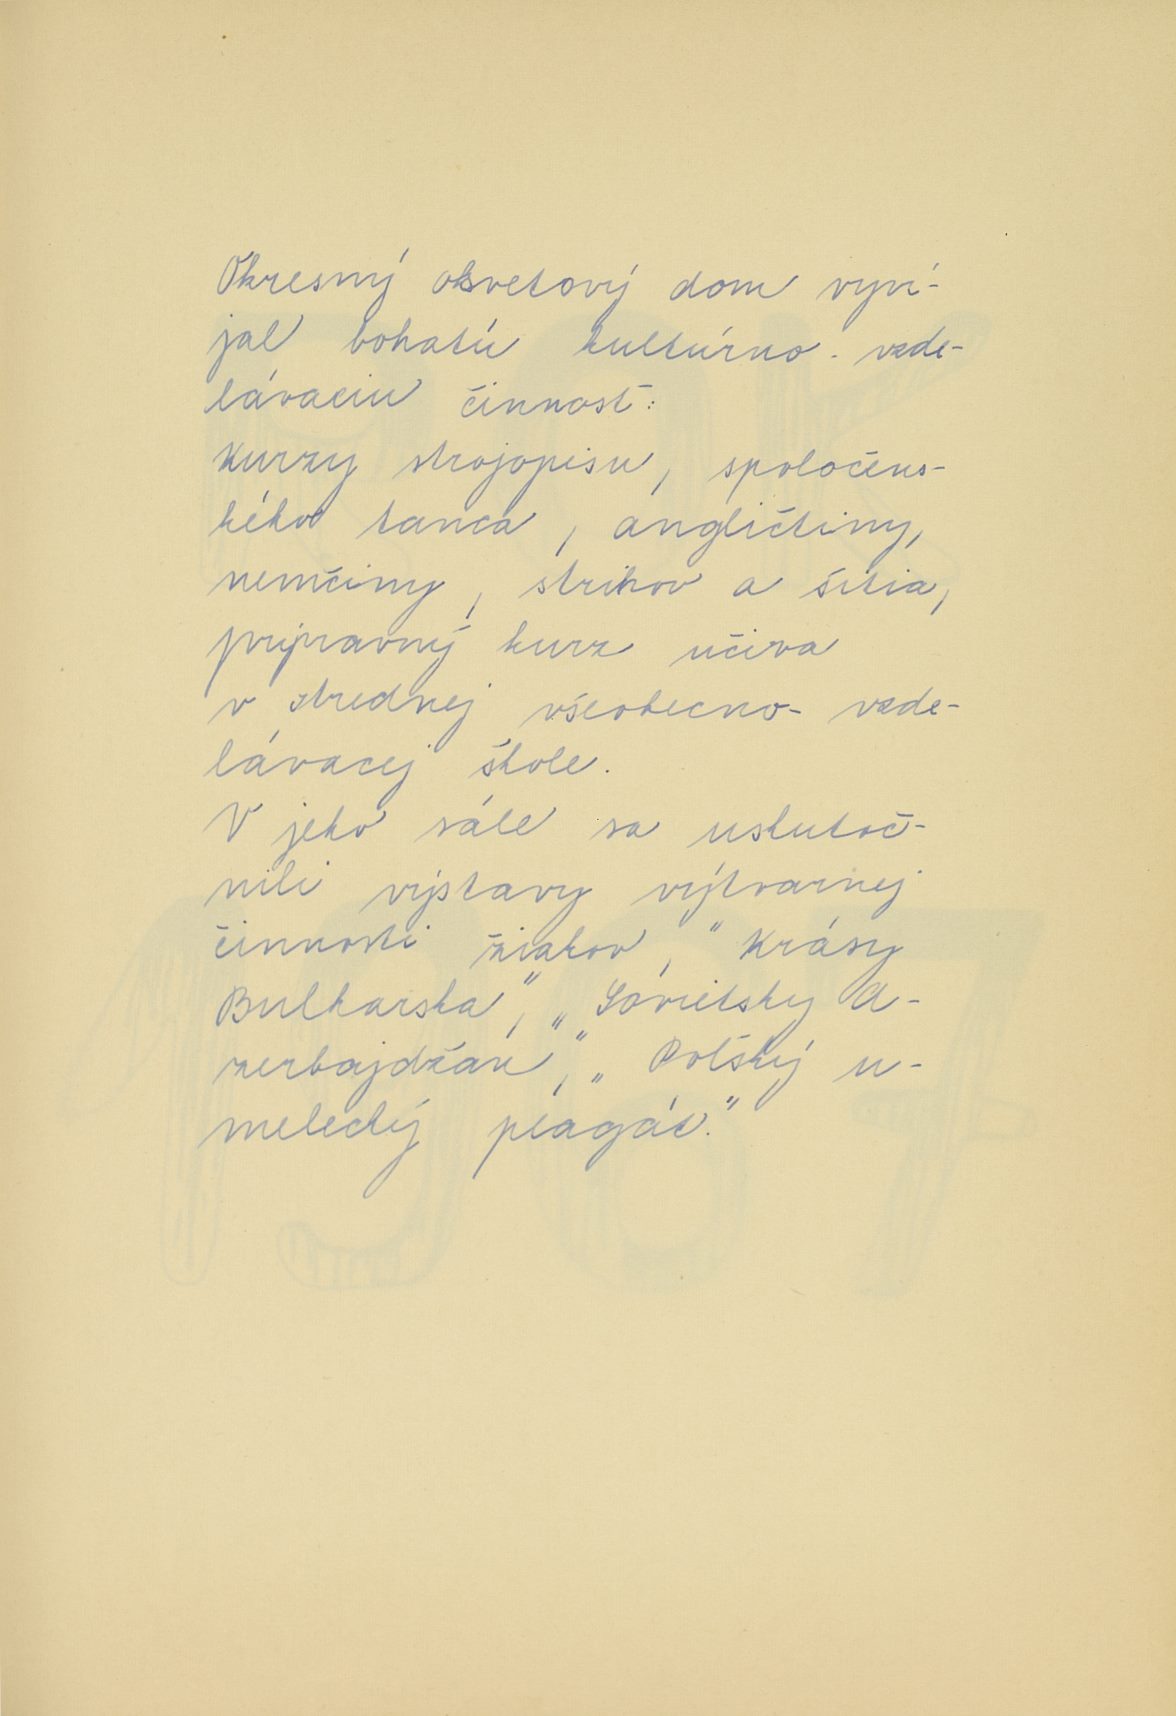 Okresný osvetový dom vyví-
jal bohatú kultúrno - vzde-
lávaciu činnosť:
Kurzy strojopisu, spoločens-
kého tanca, angličtiny,
nemčiny, strihov a šitia,
prípravný kurz učiva
v strednej všeobecno- vzde-
lávacej škole.
V jeho sále sa uskutoč-
nili výstavy výtvarnej
činnosti žiakov, "Krásy
Bulharska", „Sovietsky A-
zerbajdžan", „Poľský u-
melecký plagát."